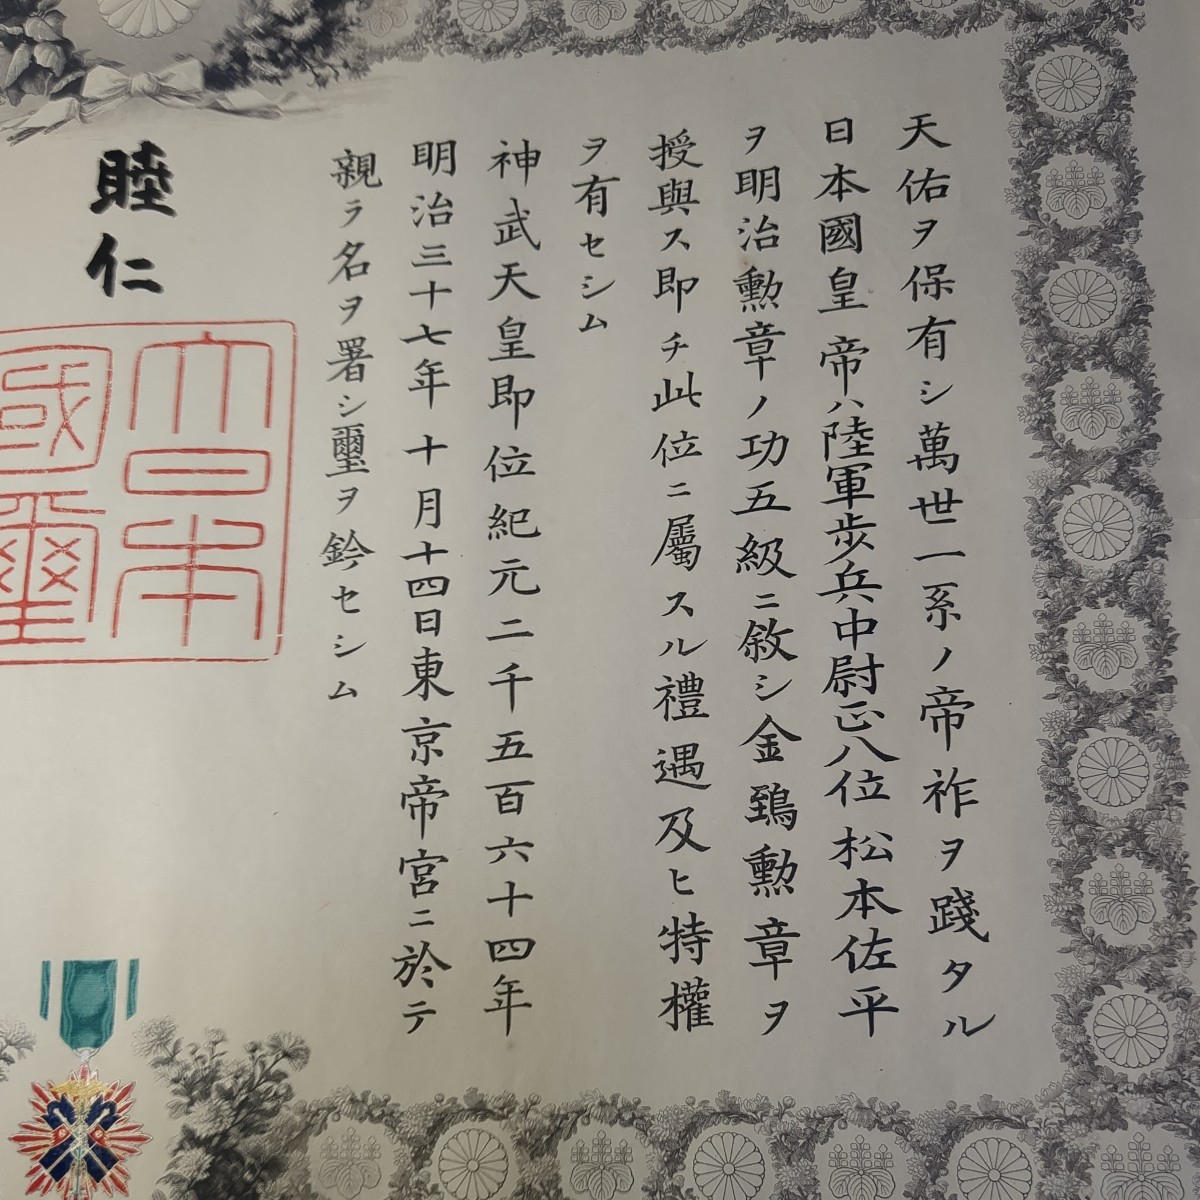 天佑ヲ保有シ萬世一系ノ帝祚ヲ踐タル
日本國皇帝ハ陸軍歩兵中尉正八位松本佐平
ヲ明治勲章ノ功五級ニ敘シ金鵄勲章ヲ
授與ス即チ此位ニ屬スル禮遇及ヒ特權
ヲ有セシム
神武天皇即位紀元二千五百六十四年
明治三十七年十月十四日東京帝宮ニ於テ
親ラ名ヲ署シ璽ヲ鈐セシム
睦仁
大日本
國璽